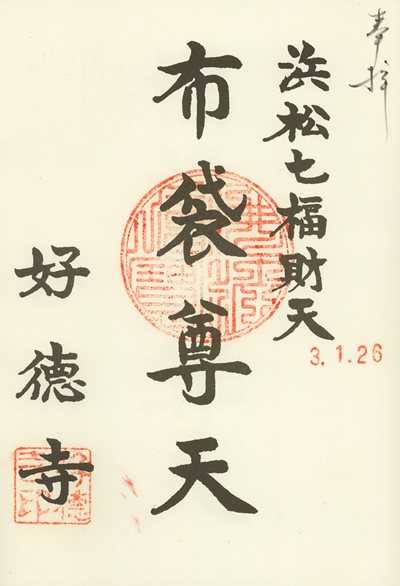 奉拝
浜松七福財天
3.1.26
布袋尊天
好徳寺